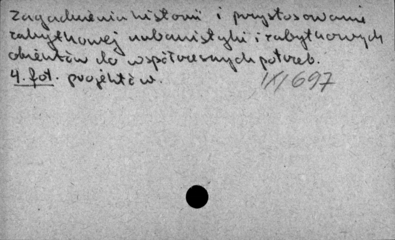 Zagadnienia historii i przystosowanie
zabytkowej urbanistyki i zabytkowych
obiektów do współczesnych potrzeb.
4. fot. projektów.
IX/697